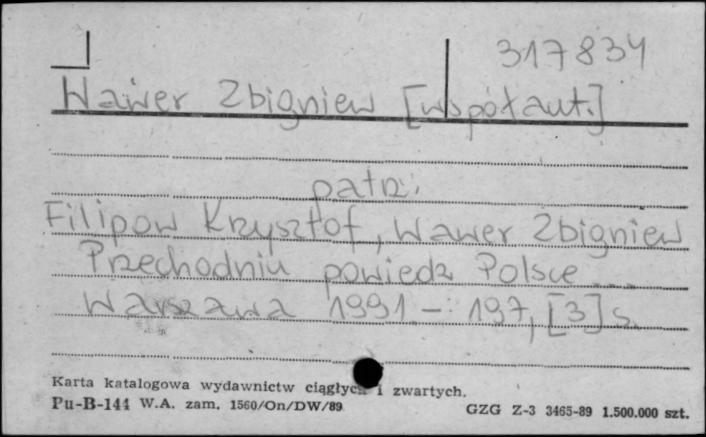 317834
Wawer Zbigniew [współaut.]
patrz:
Filipow Krzysztof, Wawer Zbigniew
Przechodniu powiedz Polsce ...
Warszawa 1991 - 197, [3] s.
Karta katalogowa wydawnictw ciągłych i zwartych.
Pu-B-144 W.A. zam. 1560/On/DW/89
GZG Z-3 3465-89 1.500.000 szt.